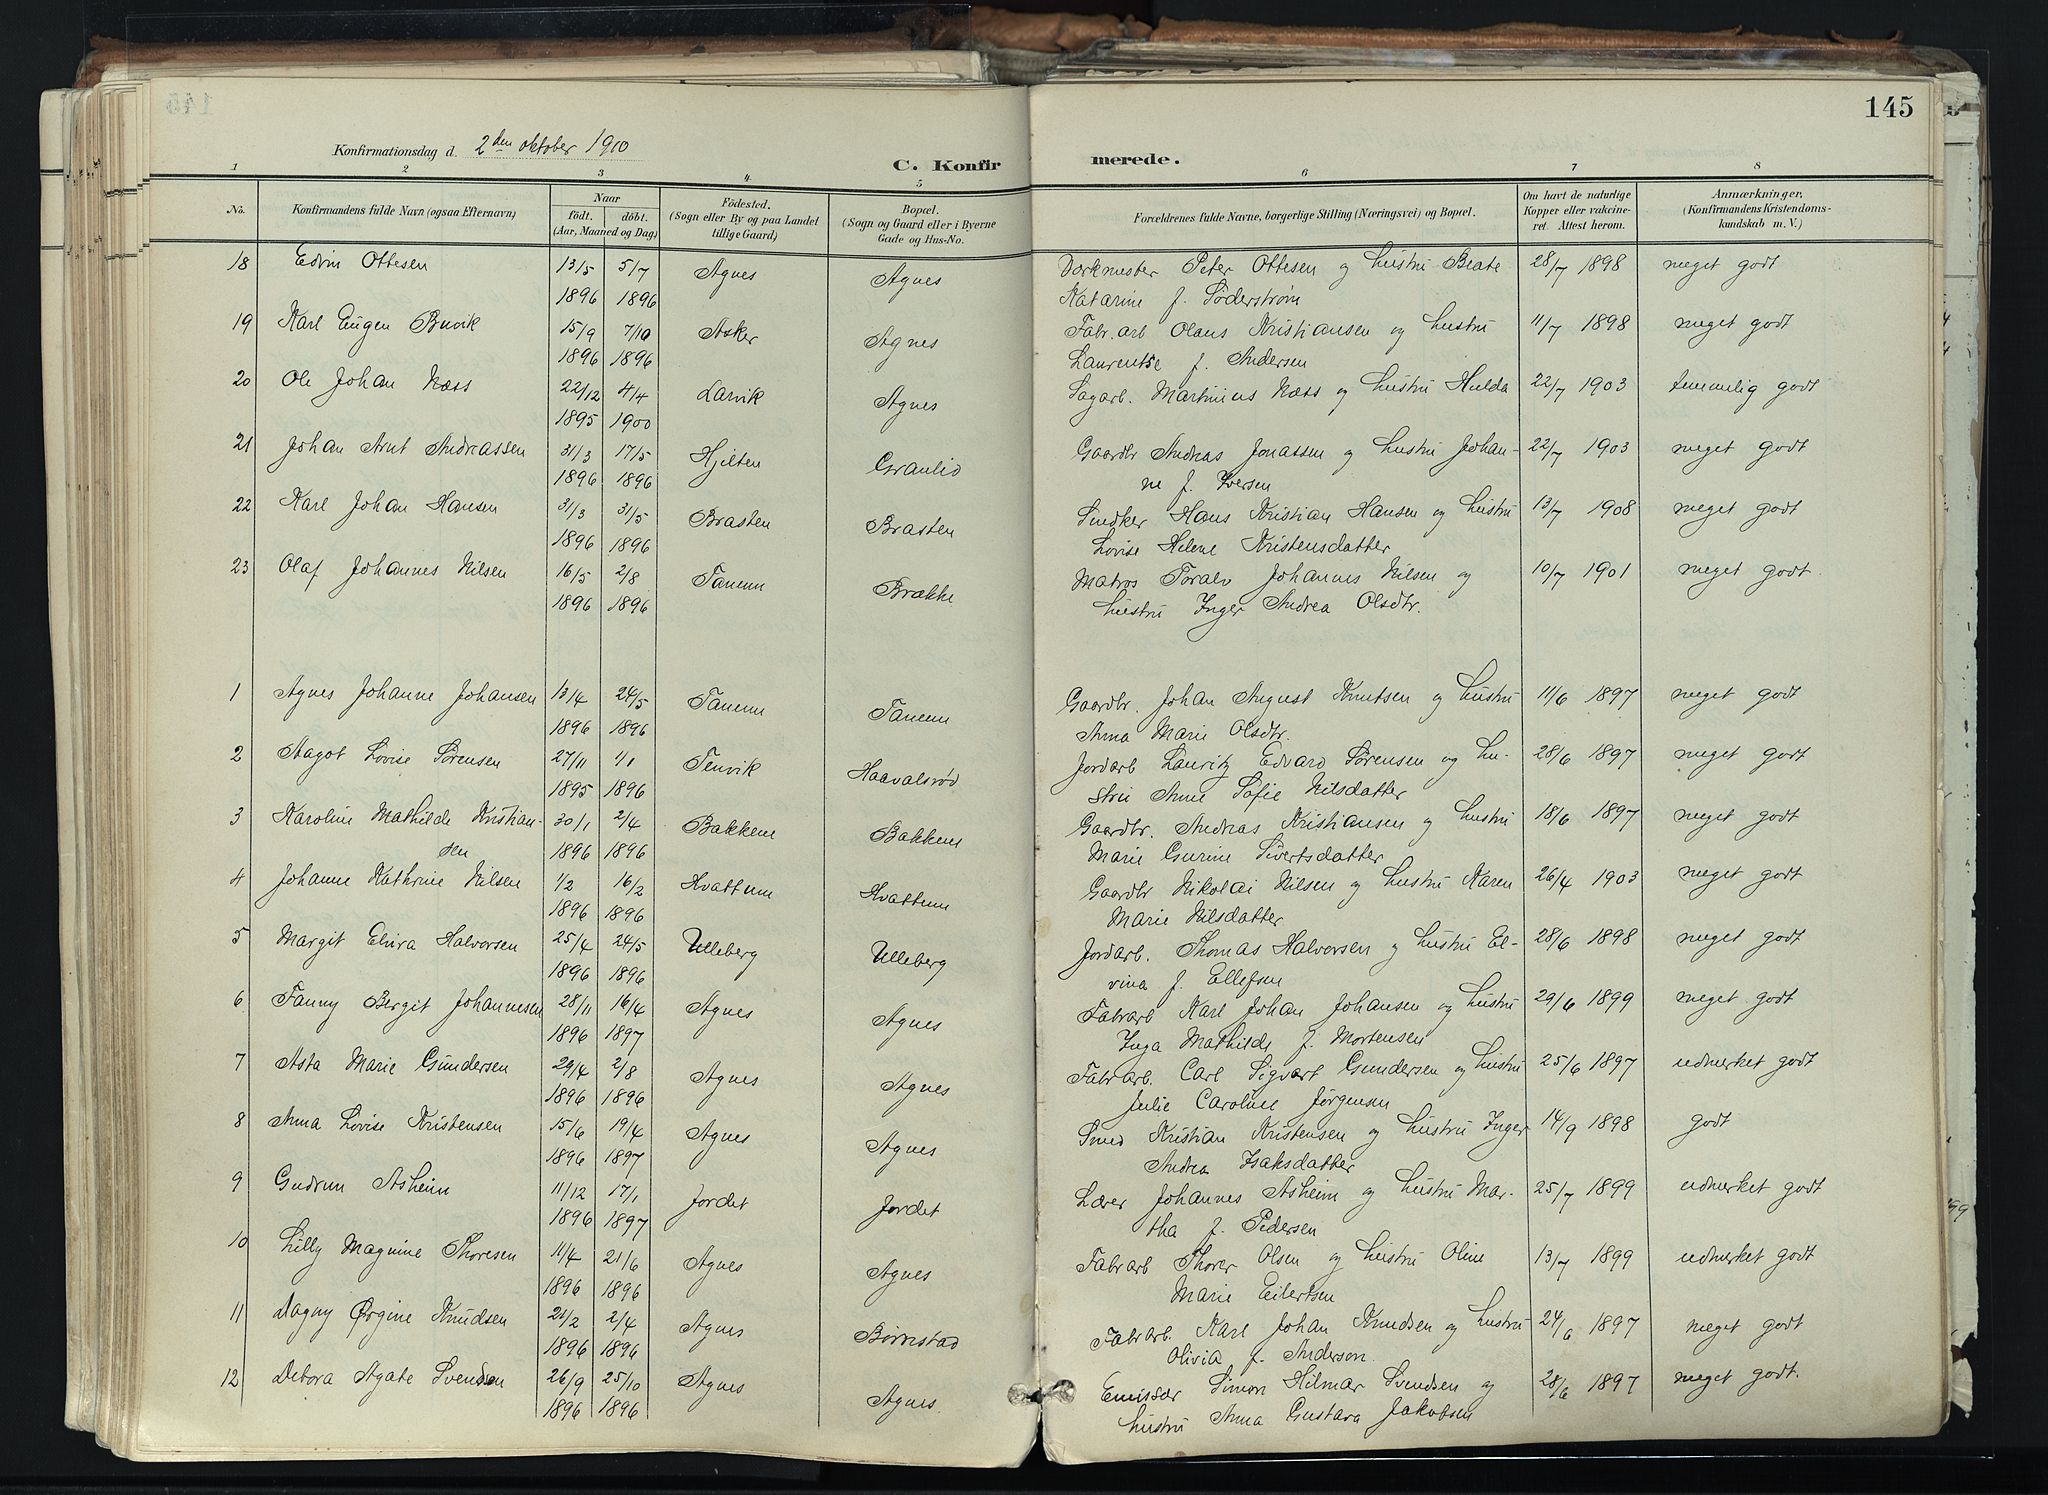 145
Konfirmationsdag d. 2den oktober 1910
C. Konfirmerede.
1 2 3 4 5 6 7 8
No.
Konfirmandens fulde Navn (ogsaa Efternavn)
Naar født. døbt. (Aar, Maaned og Dag)
Fødested. (Sogn eller By og paa Landet tillige Gaard)
Bopæl. (Sogn og Gaard eller i Byerne Gade og Hus-No.
Forældrenes fulde Navne, borgerlige Stilling (Næringsvei) og Bopæl.
Om havt de naturlige Kopper eller vakcineret. Attest herom.
Anmærkninger, (Konfirmandens Kristendomskundskab m. V.)
18 Edvin Ottesen 13/5 5/7 Agnes Agnes Peter Ottesen og hustru Beate 28/7 1898 meget godt
1896 1896 Katarine f. Söderstrøm
19 Karl Eugen Buvik 15/9 7/10 Asker Agnes Fabr.arb Olaus Kristiansen og hustru 11/7 1898 meget godt
1896 1896 Laurentse f. Andersen
20 Ole Johan Næss 22/12 4/4 Larvik Agnes Sagarb. Martinius Næss og hustru Hulda 22/7 1903 temmelig godt
1895 1900
21 Johan Arnt Andreassen 31/3 17/5 Hjelten Granlid Gaardbr Andreas Jonassen og hustru Johan- 22/7 1903 meget godt
1896 1896 ne f. Iversen
22 Karl Johan Hansen 31/3 31/5 Brasten Brasten Snedker Hans Kristian Hansen og hustru 13/7 1908 meget godt
1896 1896 Lovise Helene Kristensdatter
23 Olaf Johannes Nilsen 16/5 2/8 Tanem Brække Matros Toralv Johannes Nilsen og 10/7 1901 meget godt
1896 1896 hustru Inger Andrea Olsdtr.
1 Agnes Johanne Johansen 13/4 24/5 Tanem Tanem Gaardbr. Johan August Knutsen og hustru 11/6 1897 meget godt
1896 1896 Anna Marie Olsdtr.
2 Aagot Lovise Sørensen 27/11 1/1 Tenvik Haavalsrød Jordarb Lauritz Edvard Sørensen og hu- 28/6 1897 meget godt
1895 1896 stru Anne Sofie Nilsdatter
3 Karoline Mathilde Kristian- 30/1 2/4 Bakkene Bakkene Gaardbr. Andreas Kristiansen og hustru 18/6 1897 meget godt
sen 1896 1896 Marie Gurine Sivertsdatter
4 Johanne Kathrine Nilsen 1/2 16/2 Hvattum Hvattum Gaardbr Nikolai Nilsen og hustru Karen 26/4 1903 meget godt
1896 1896 Marie Nilsdatter
5 Margit Elvira Halvorsen 25/4 24/5 Ulleberg Ulleberg Jordarb. Thomas Halvorsen og hustru El- 28/6 1898 meget godt
1896 1896 vina f. Ellefsen
6 Fanny Bergit Johannesen 28/11 16/4 Agnes Agnes Fabrarb Karl Johan Johansen og hustru 29/6 1899 meget godt
1896 1897 Inga Mathilde f. Mortensen
7 Asta Marie Gundersen 29/4 2/8 Agnes Agnes Fabrarb. Carl Sigvart Gundersen og hustru 25/6 1897 udmerket godt
1896 1896 Julie Caroline Jørgensen
8 Anna Lovise Kristensen 15/6 19/4 Agnes Agnes Smed Kristian Kristensen og hustru Inger 14/9 1898 godt
1896 1897 Andrea Isaksdatter
9 Gudrun Asheim 11/12 17/1 Jordet Jordet Lærer Johannes Asheim og hustru Mar- 25/7 1899 udmerket godt
1896 1897 tha f. Pedersen
10 Lilly Magnine Thoresen 11/4 21/6 Agnes Agnes Fabrarb Thorer Olsen og hustru Oline 13/7 1899 udmerket godt
1896 1896 Marie Eilertsen
11 Dagny Ørgine Knudsen 21/2 2/4 Agnes Børrestad Fabrarb. Karl Johan Knudsen og hustru 24/6 1897 meget godt
1896 1896 Olivia f. Anderson
12 Debora Agate Svendsen 26/9 25/10 Agnes Agnes. Emissær Simon Hilmar Svendsen og 28/6 1897 meget godt.
1896 1896 hustru Anna Gustava Jakobsen